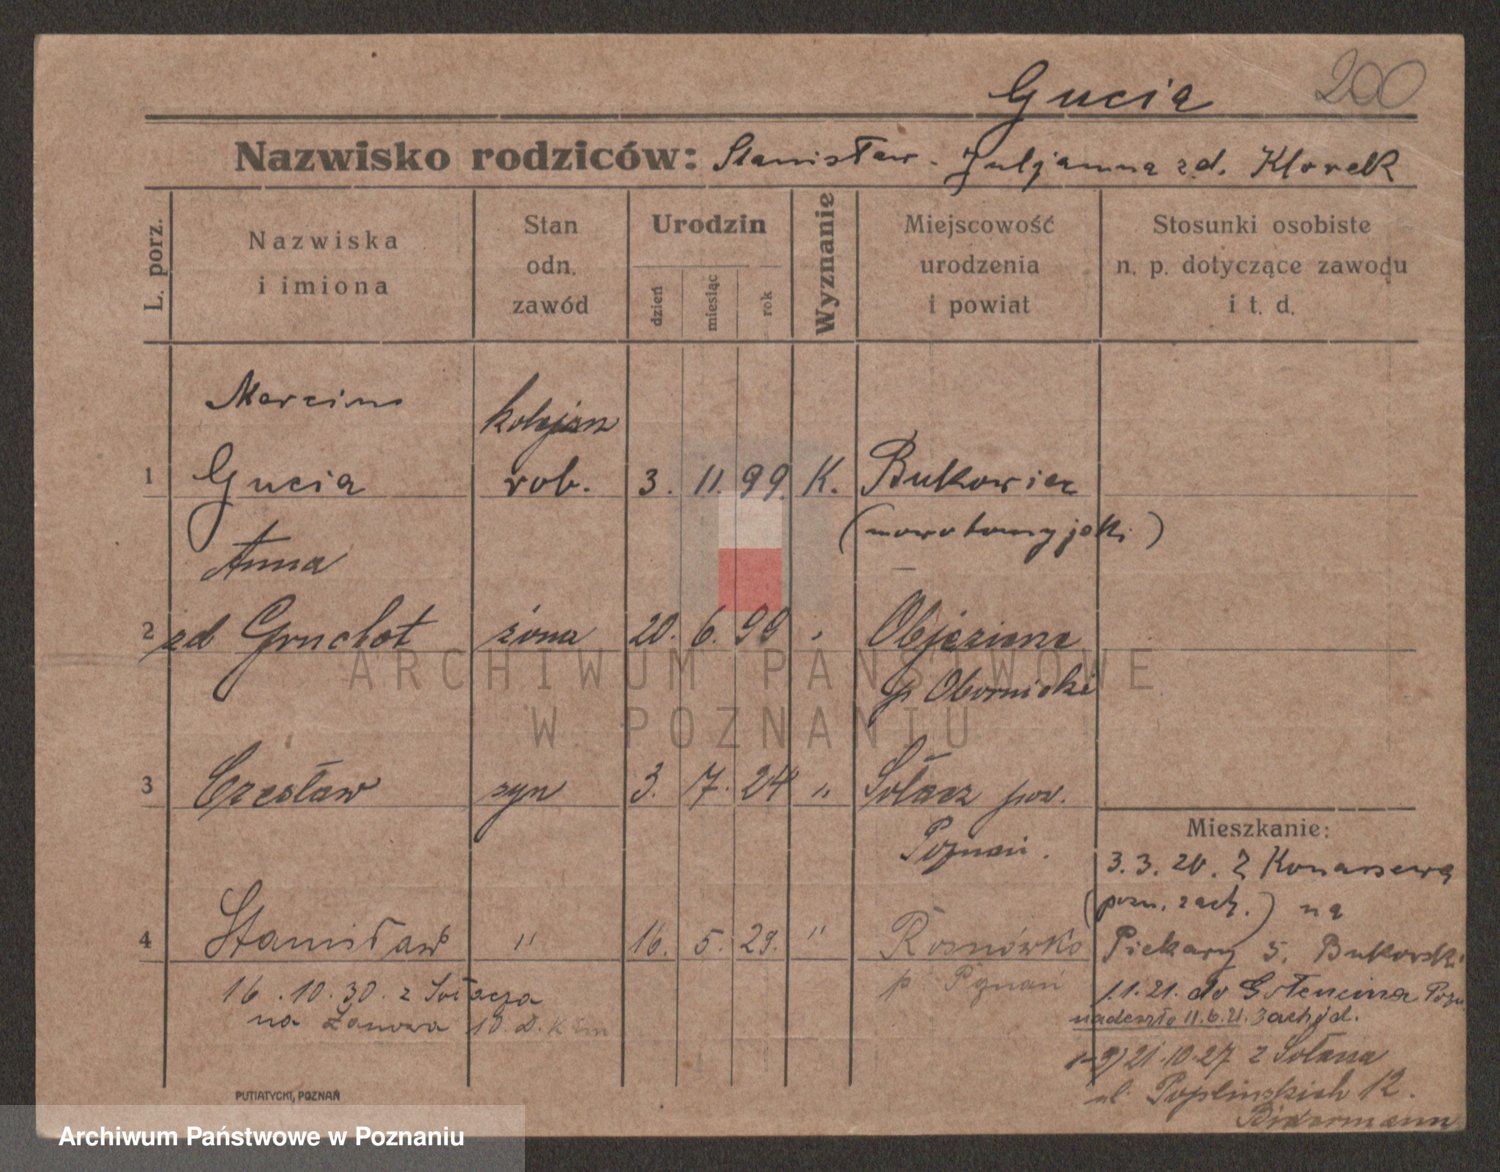 Gucia 200
Nazwisko rodziców: Stanisław - Juljanna zd. Klorek
L. porz.
Nazwiska i imiona
Stan odn. zawód
Urodzin
dzień miesiąc rok
Wyznanie
Miejscowość urodzenia i powiat
Stosunki osobiste n. p. dotyczące zawodu i t. d.
Marcin
1 Gucia rob. 3. 11. 99. K. Bukowiec
(nowotomyjski)
Anna
2 zd Gruchot żona 20. 6. 99 " Objezierze
p. Obornicki
3 Czesław syn 3. 7. 24 " Sołacz pow.
Poznań.
4 Stanisław " 16. 5. 29. " Rosnówko
p Poznań
16.10.30. z Sołacza
na
Mieszkanie:
3.3.20. Z Konarzewa
(pozn. zach.) na
Piekary 5. Bukowski
1.1.21. do Golencina Pozn
nadeszło 11.6.21. zachjd.
21.10.27 z Sołacza
ul. Poplińskich 12.
Bidermann
PUTIATYCKI, POZNAŃ
ARCHIWUM PAŃSTWOWE
W POZNANIU
Archiwum Państwowe w Poznaniu